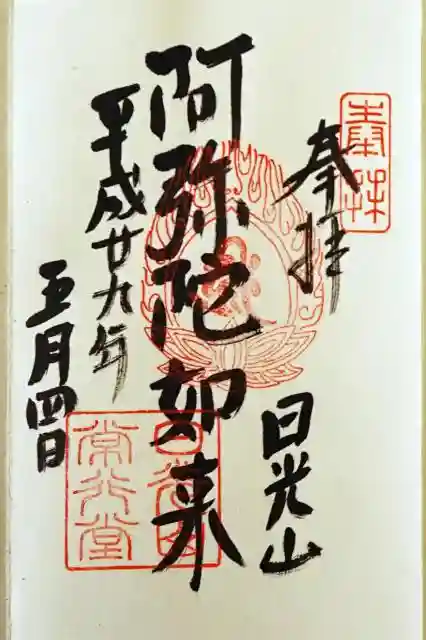 奉拝
奉拝
日光山
阿弥陀如来
平成廿九年
五月四日
日光山
常行堂